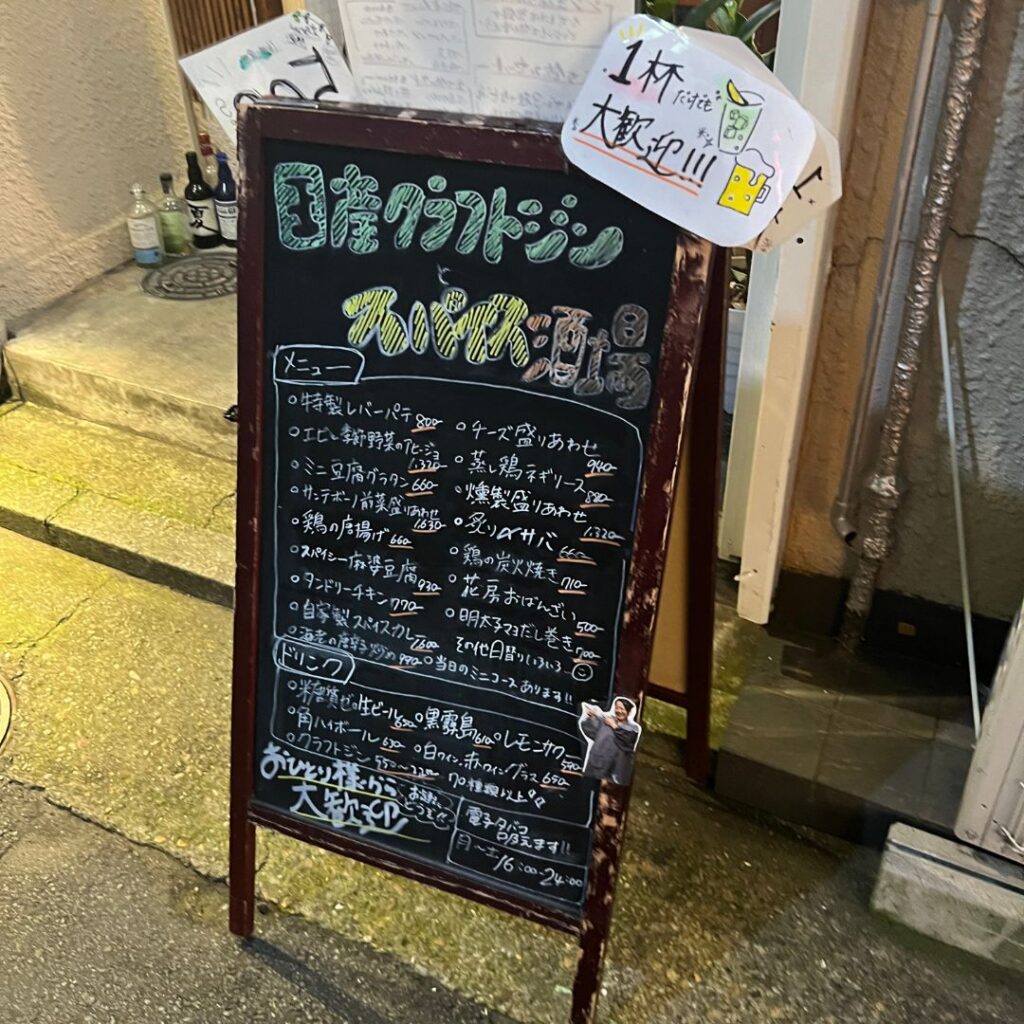 1杯
だけでも
大歓迎!!!
国産クラフトジン
と
スパイス酒場
メニュー
○特製レバーパテ 800-
○エビと季節野菜のアヒージョ 1,320-
○ミニ豆腐グラタン 660-
○サンテボーノ前菜盛りあわせ 1,630-
○鶏の唐揚げ 660-
○スパイシー麻婆豆腐 930-
○タンドリーチキン 770-
○自家製スパイスカレー
○海老の唐辛子炒め 990-
○チーズ盛りあわせ 940-
○蒸し鶏ネギソース
○燻製盛りあわせ 1,320-
○炙り〆サバ 660-
○鶏の炭火焼き 710-
○花房おばんざい 500-
○明太子マヨだし巻き 700-
その他日替りいろいろ
○当日のミニコースあります!!
ドリンク
○糖質ゼロ生ビール 650
○黒霧島 610
○レモンサワー 590
○角ハイボール 630-
○白ワイン、赤ワイングラス 650-
○クラフトジン 550〜2200
70種類以上
おひとり様から
大歓迎
電子タバコ
吸えます!!
月〜土16:00-24:00